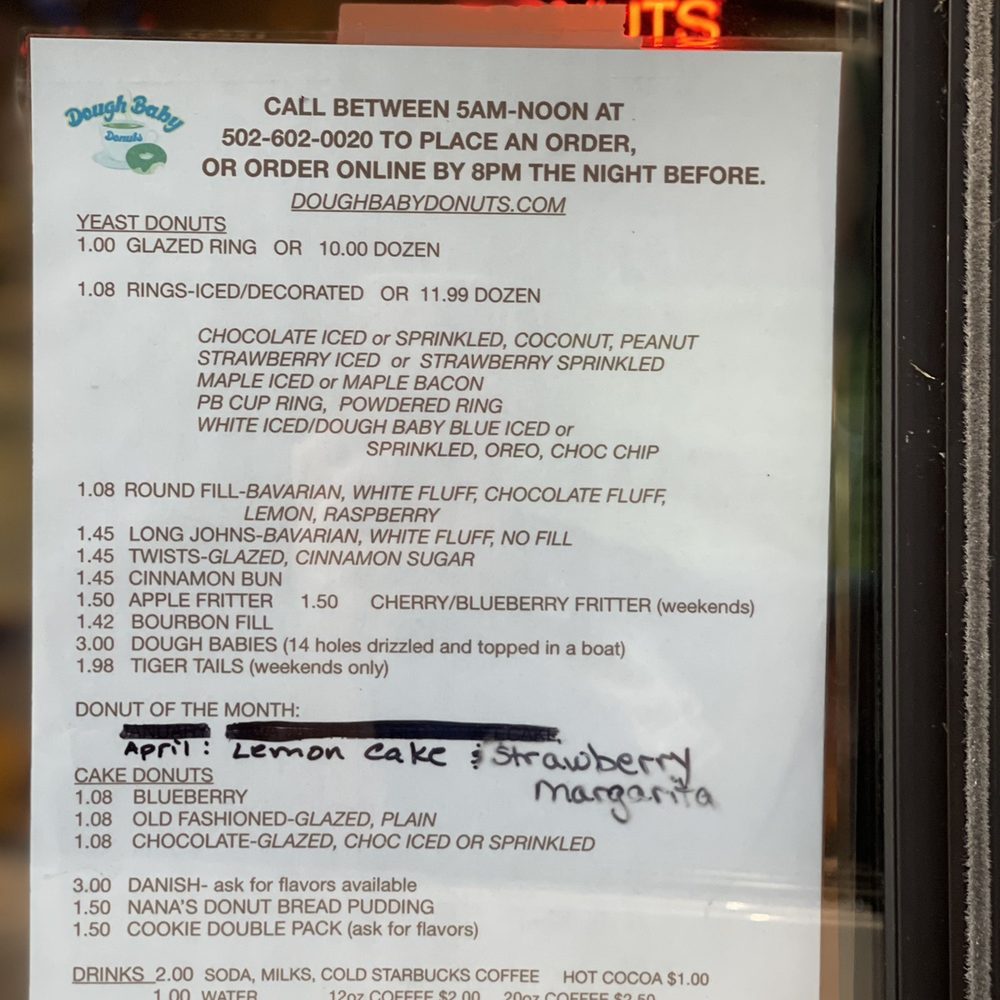 NUTS
Dough Baby
Donuts
CALL BETWEEN 5AM-NOON AT
502-602-0020 TO PLACE AN ORDER,
OR ORDER ONLINE BY 8PM THE NIGHT BEFORE.
DOUGHBABYDONUTS.COM
YEAST DONUTS
1.00 GLAZED RING OR 10.00 DOZEN
1.08 RINGS-ICED/DECORATED OR 11.99 DOZEN
CHOCOLATE ICED or SPRINKLED, COCONUT, PEANUT
STRAWBERRY ICED or STRAWBERRY SPRINKLED
MAPLE ICED or MAPLE BACON
PB CUP RING, POWDERED RING
WHITE ICED/DOUGH BABY BLUE ICED or
SPRINKLED, OREO, CHOC CHIP
1.08 ROUND FILL-BAVARIAN, WHITE FLUFF, CHOCOLATE FLUFF,
LEMON, RASPBERRY
1.45 LONG JOHNS-BAVARIAN, WHITE FLUFF, NO FILL
1.45 TWISTS-GLAZED, CINNAMON SUGAR
1.45 CINNAMON BUN
1.50 APPLE FRITTER 1.50 CHERRY/BLUEBERRY FRITTER (weekends)
1.42 BOURBON FILL
3.00 DOUGH BABIES (14 holes drizzled and topped in a boat)
1.98 TIGER TAILS (weekends only)
DONUT OF THE MONTH:
April: Lemon cake & Strawberry
Margarita
CAKE DONUTS
1.08 BLUEBERRY
1.08 OLD FASHIONED-GLAZED, PLAIN
1.08 CHOCOLATE-GLAZED, CHOC ICED OR SPRINKLED
3.00 DANISH- ask for flavors available
1.50 NANA'S DONUT BREAD PUDDING
1.50 COOKIE DOUBLE PACK (ask for flavors)
DRINKS 2.00 SODA, MILKS, COLD STARBUCKS COFFEE HOT COCOA $1.00
1.00 WATER 12oz COFFEE $2.00 20oz COFFEE $2.50